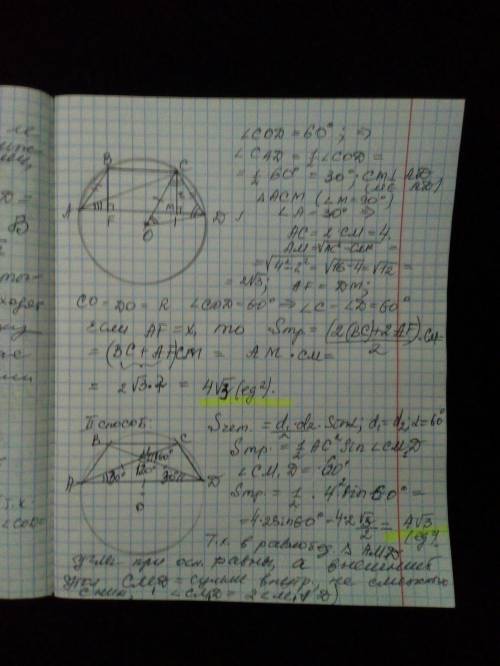 ∠COD = 60°; ⇒
∠CAD = ½ ∠COD =
= ½ 60° = 30°; CM ⊥ AD
ΔACM (∠M = 90°)
∠A = 30° ⇒
AC = 2·CM = 4.
AM = √AC² - CM² =
= √4² - 2² = √16-4 = √12 =
= 2√3; AF = DM;
B C
A F O M D
CO = DO = R ∠COD = 60° ⇒ ∠C = ∠D = 60°
Если AF = x, то Sтр = (2(BC)+2AF)·CM / 2
= (BC + AF)CM = AM · CM =
= 2√3·2 = 4√3 (ед²).
II способ:
d₁·d₂·Sinα; d₁ = d₂; α = 60°
Sтр. = ½ AC² Sin ∠CM₁D
∠CM₁D = 60°
Sтр. = ½ · 4² sin 60° =
= 4·2 sin 60° = 4·2 √3/2 = 4√3 (ед²)
B C
A 30° 120° 60° 30° D
O
Т.к. в равнобед. Δ AM₁D
углы при осн. равны, а внешний
угол CM₁D = сумме внутр. не смежных
с ним, ∠CM₁D = 2∠M₁AD)